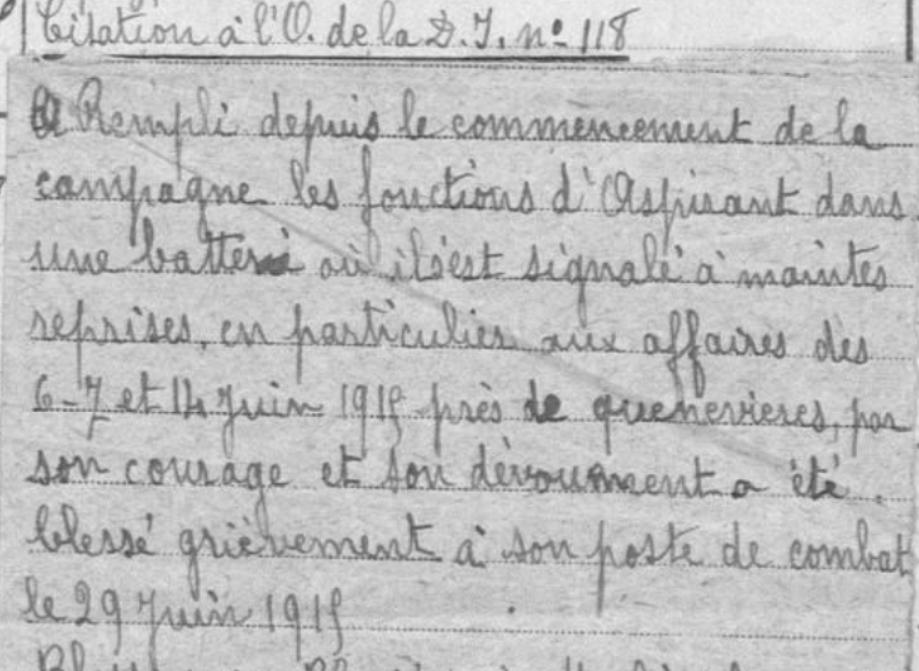 Citation à l'O. de la D.I. nº 118
A Rempli depuis le commencement de la
campagne les fonctions d'Aspirant dans
une batterie où il s'est signalé à maintes
reprises, en particulier aux affaires des
6-7 et 14 Juin 1915 près de quenevieres, par
son courage et son dévouement a été
blessé grièvement à son poste de combat
le 29 Juin 1915